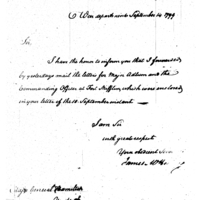 War department September 14 1799
Sir,
I have the honor to inform you that I forwarded
by yesterdays mail the letters for Major Adlum and the
Commanding Officer at Fort Mifflin, which were enclosed
in your letter of the 12 September instant
I am Sir
with great respect
Your obedient
James
Major General Hamilton